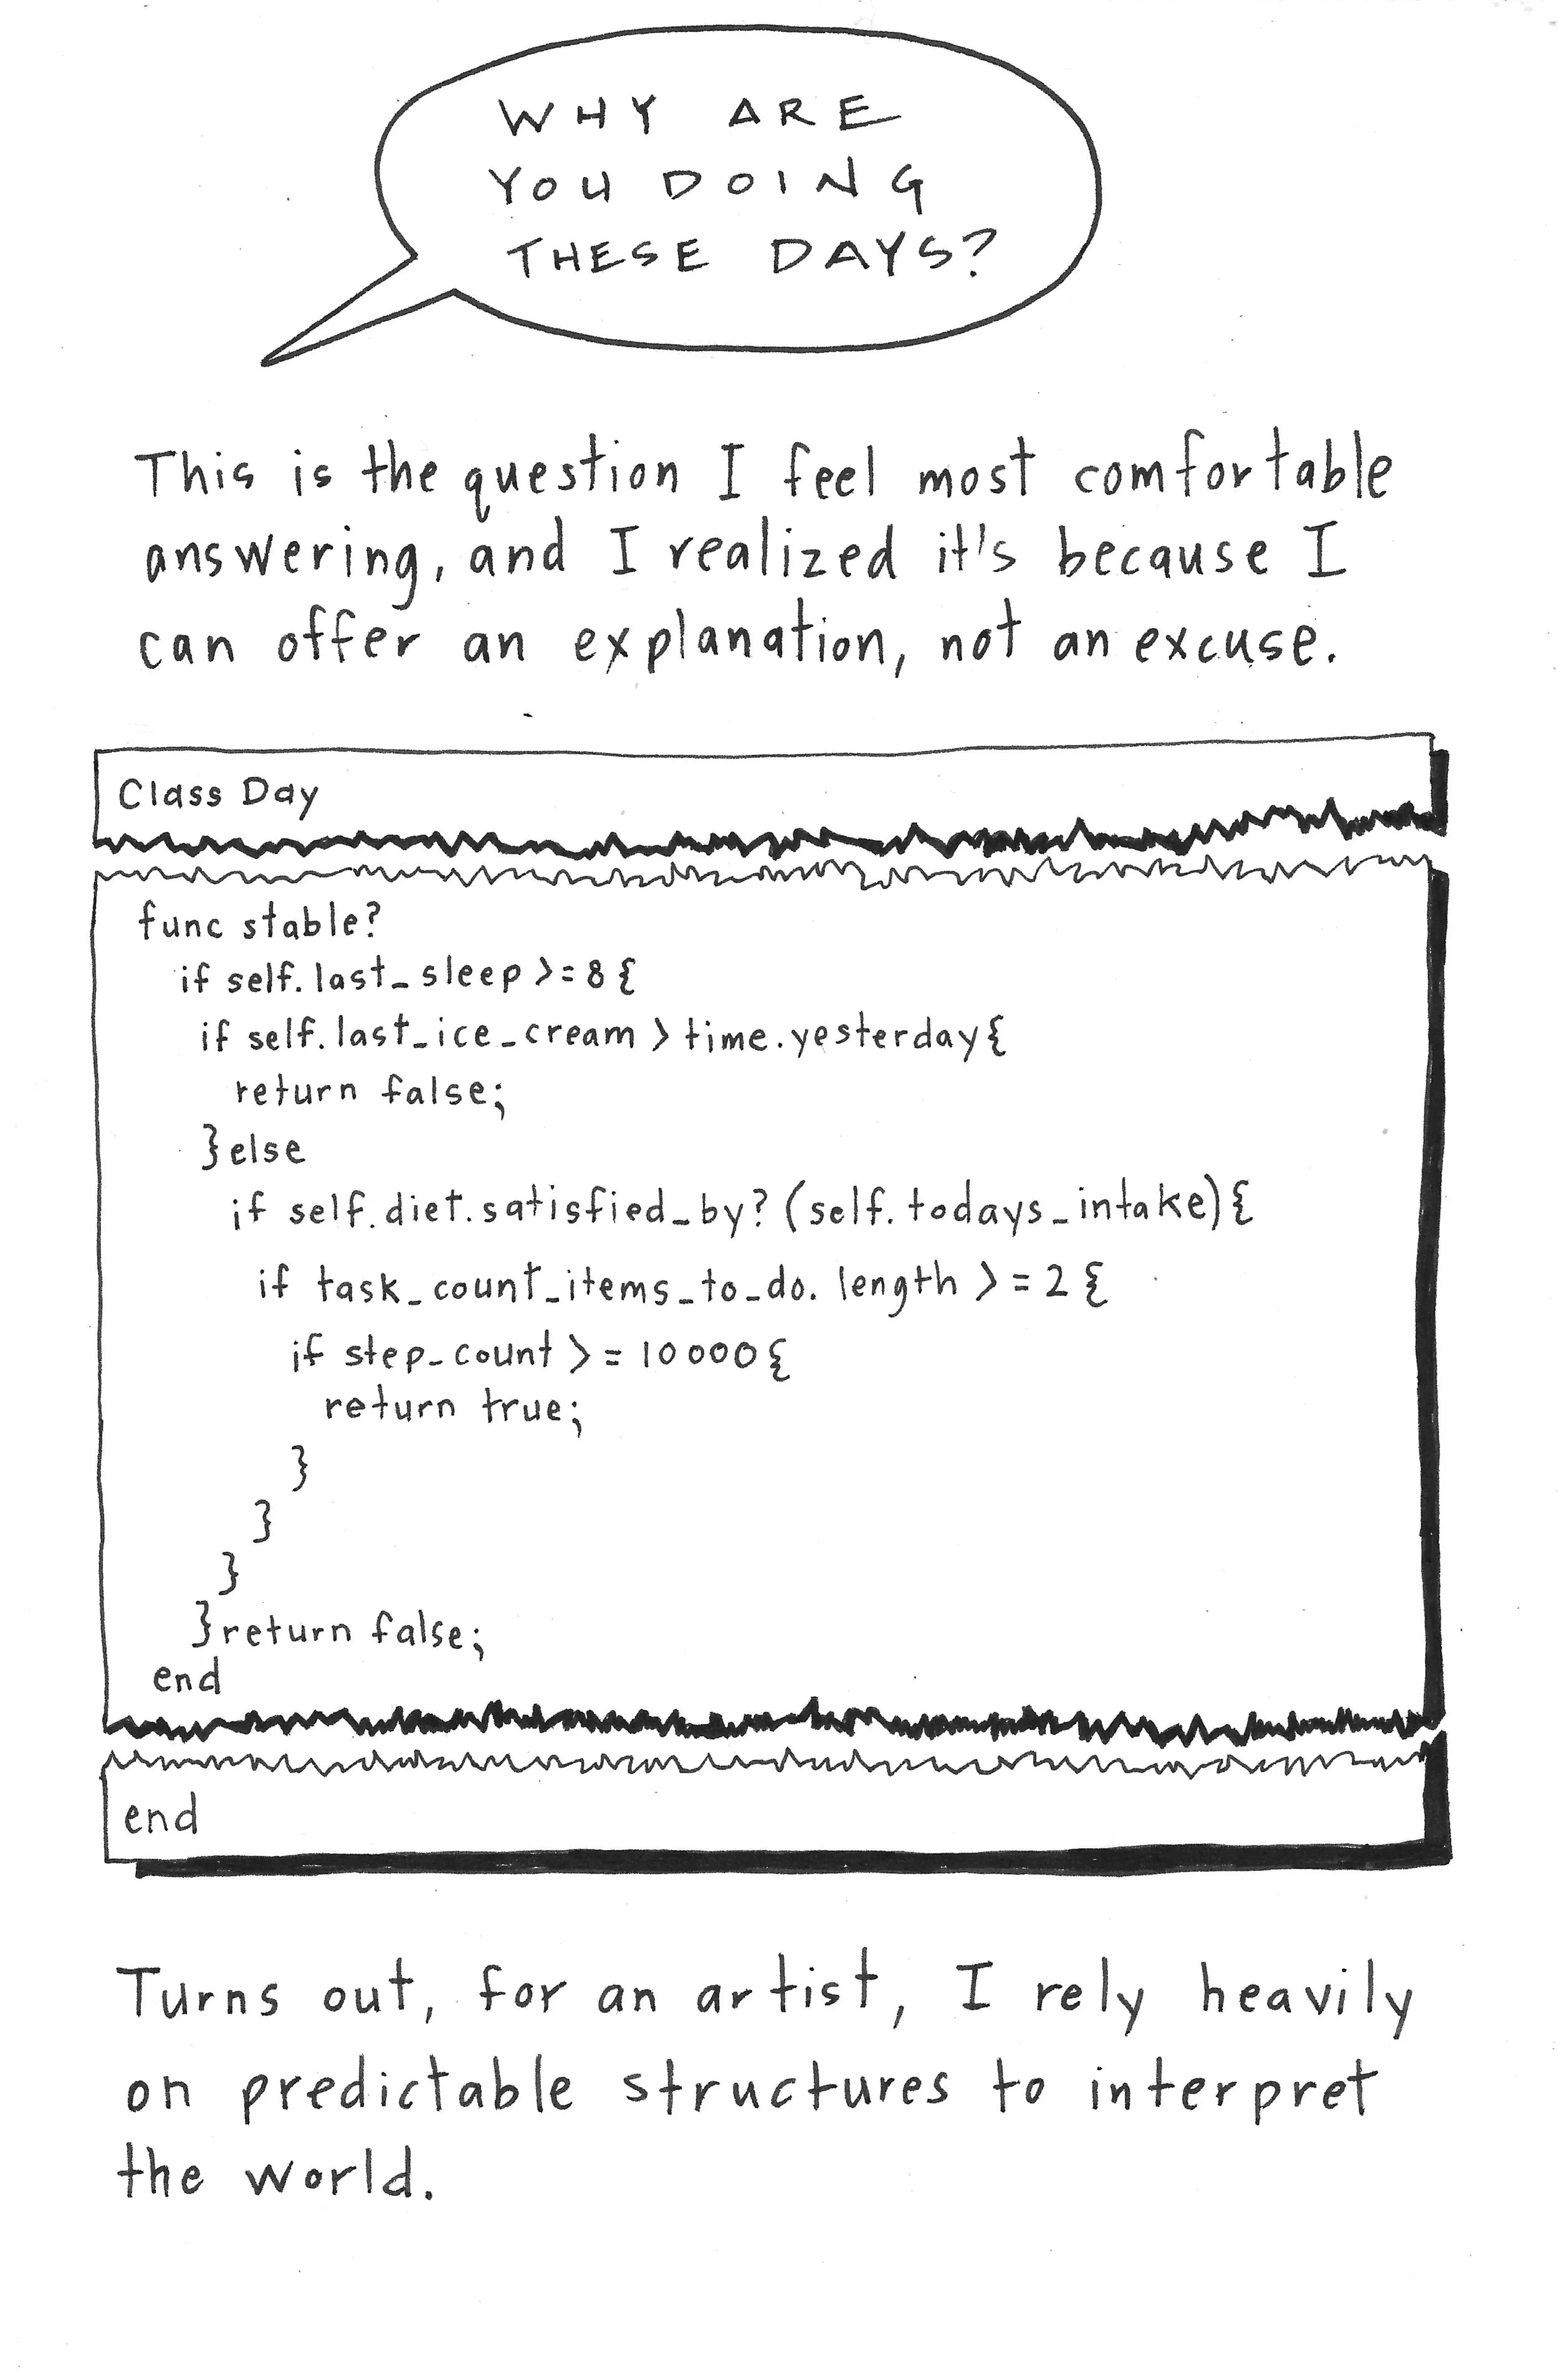 WHY ARE
YOU DOING
THESE DAYS?
This is the question I feel most comfortable
answering, and I realized it's because I
can offer an explanation, not an excuse.
Class Day
func stable?
if self.last_sleep >= 8 {
if self.last_ice_cream > time.yesterday{
return false;
}else
if self.diet.satisfied_by? (self.todays_intake){
if task_count_items_to_do.length >= 2 {
if step_count >= 10000{
return true;
}
}
}
}return false;
end
end
Turns out, for an artist, I rely heavily
on predictable structures to interpret
the world.